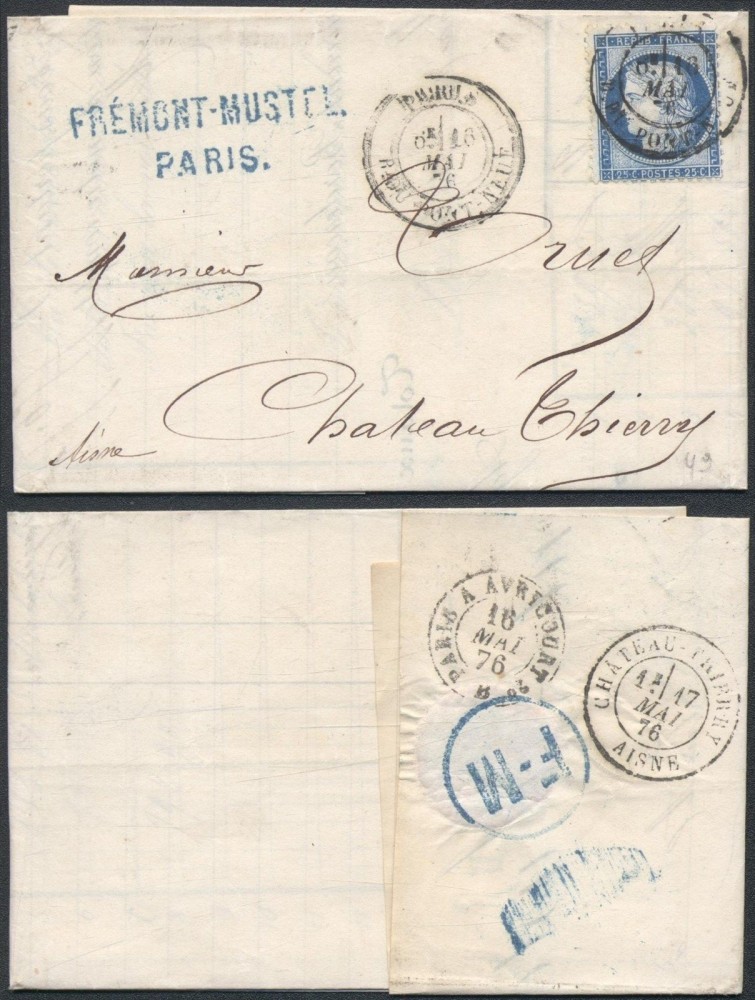 FRÉMONT-MUSTEL.
PARIS.
PARIS
6E 16
MAI
76
R. DU PONT-NEUF
REPUB FRANC
6E 16
MAI
76
25·C·POSTES·25·C
Monsieur Truet
Chateau Thierry
Aisne
49
PARIS A AVRICOURT
16
MAI
76
CHATEAU-THIERRY
1E 17
MAI
76
AISNE
F-M